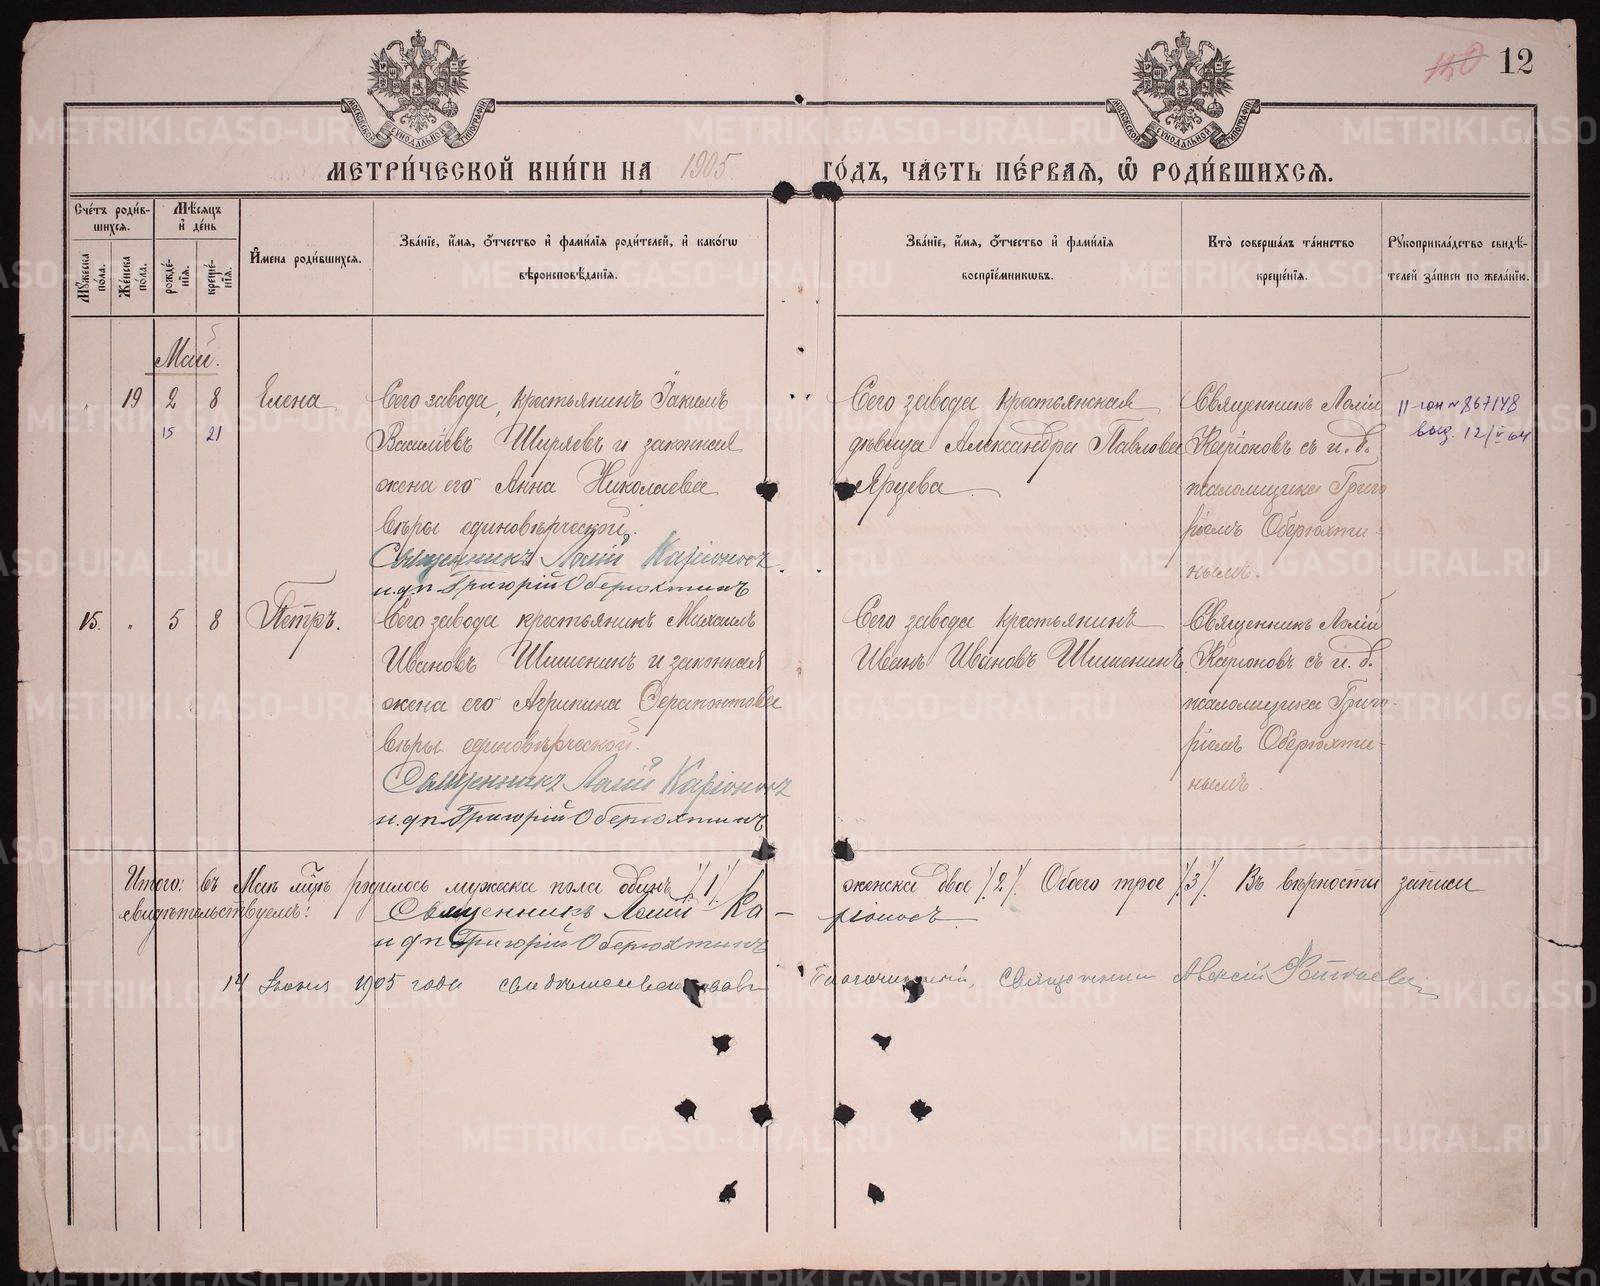 150 12
МОСКОВСКОЙ СѴНОДАЛЬНОЙ ТИПОГРАФІИ
МОСКОВСКОЙ СѴНОДАЛЬНОЙ ТИПОГРАФІИ
МЕТРИ́ЧЕСКОЙ КНИ́ГИ НА 1905 ГО́ДЪ, ЧА́СТЬ ПЕ́РВАЯ, Ѽ РОДИ́ВШИХСѦ.
Сче́тъ роди́в-
шихсѧ.
Мꙋ́жеска пола.
Же́нска по́ла.
Мѣ́сѧцъ
и҆ де́нь
рожде́-
нїѧ.
креще́-
нїѧ.
И҆мена роди́вшихсѧ.
Зва́нїе, и҆́мѧ, ѻ҆́тчество и҆ фами́лїѧ роди́телей, и҆ како́гѡ
вѣроисповѣ́данїѧ.
Зва́нїе, и҆́мѧ, ѻ҆́тчество и҆ фами́лїѧ
воспрїе́мникѡвъ.
Кто̀ соверша́лъ та́инство
креще́нїѧ.
Рꙋкоприкла́дство свидѣ́-
телей за́писи по жела́нїю.
Май.
19 2 8 Елена Сего завода, крестьянинъ Іакимъ
15 21
Василіевъ Ширяевъ и законная
жена его Анна Николаева
вѣры единовѣрческой.
Священникъ Лолій Каріоновъ
и.д.п. Григорій Оберюхтинъ
Сего завода крестьянская
дѣвица Александра Павлова
Ярцева
Священникъ Лолій
Каріоновъ съ и. д.
псаломщика Григо
ріемъ Оберюхти-
нымъ.
II-юн № 867148
выд. 12/V 64
15. " 5 8 Петръ. Сего завода крестьянинъ Михаилъ
Ивановъ Шишенинъ и законная
жена его Агрипина Ферапонтова
вѣры единовѣрческой.
Священникъ Лолій Каріоновъ
и.д.п. Григорій Оберюхтинъ
Сего завода крестьянинъ
Иванъ Ивановъ Шишенинъ
Священникъ Лолій
Каріоновъ съ и. д.
псаломщика Григо-
ріемъ Оберюхти-
нымъ.
Итого: въ Маѣ м͠цѣ родилось мужска пола одинъ /1/ женска двое /2/. Обоего трое /3/. Въ вѣрности записи
свидѣтельствуемъ: Священникъ Лолій Ка-
ріоновъ
и.д.п. Григорій Оберюхтинъ
14 Іюня 1905 года свидѣтельствовалъ Благочинный, священникъ Алексій
METRIKI.GASO-URAL.RU